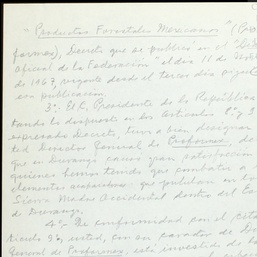 "Productos Forestales Mexicanos" (Pro
formex), Decreto que se publicó en el "Di
Oficial de la Federación" el día 11 de
de 1967, vigente desde el tercer día
su publicación.
3º.- El C. Presidente de la República
lo dispuesto en los artículos
expresado Decreto, tuvo a bien designar
ted Director General de Proformex, de
que en Durango causó gran satisfacción
quienes hemos tenido que combatir a
elementos que pueblan en la
Sierra Madre Occidental dentro del Es
de Durango.
4º.- De conformidad con el
tículo 9º, usted, con su carácter de Di
General de Proformex, está investido de